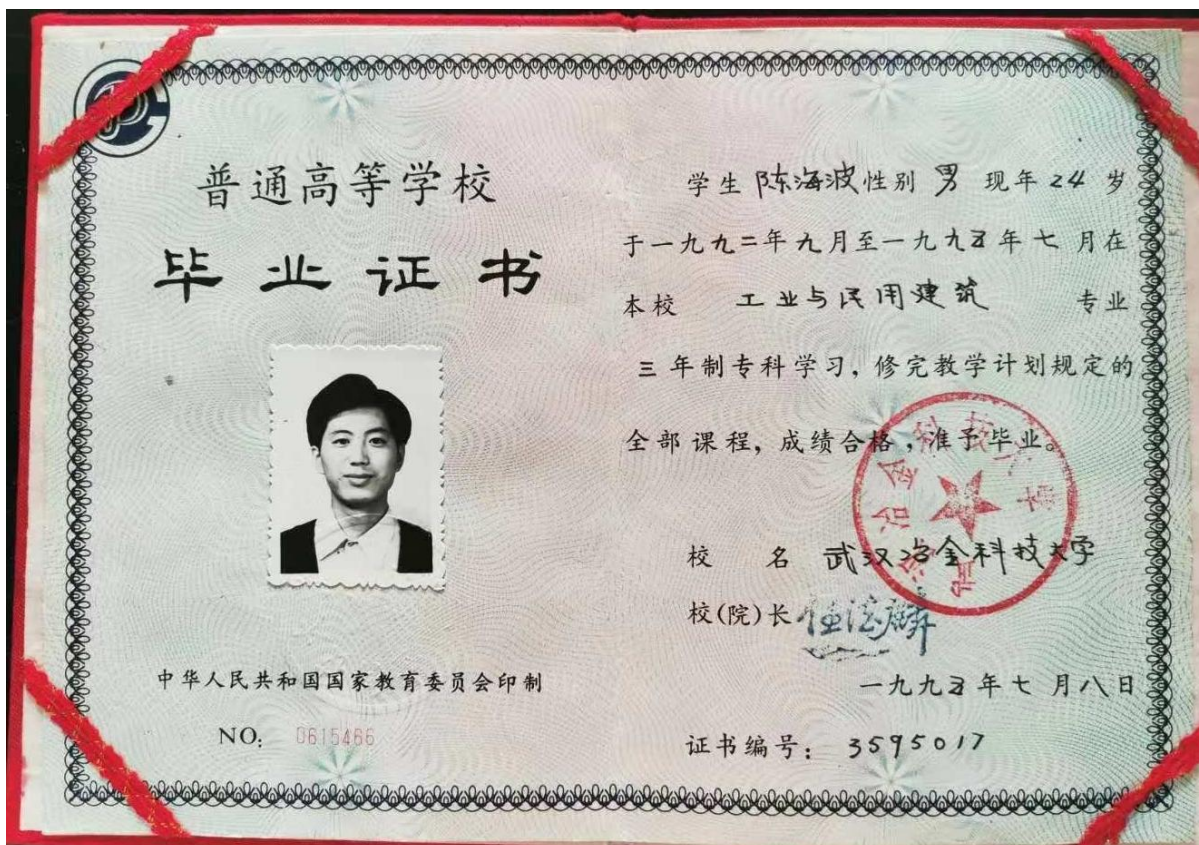 普通高等学校
毕业证书
中华人民共和国国家教育委员会印制
NO: 0615466
学生 陈海波 性别 男 现年 24 岁
于一九九二年九月至一九九五年七月在
本校 工业与民用建筑 专业
三年制专科学习，修完教学计划规定的
全部课程，成绩合格，准予毕业。
校名 武汉冶金科技大学
校(院)长
一九九五年七月八日
证书编号：3595017
武汉冶金科技大学